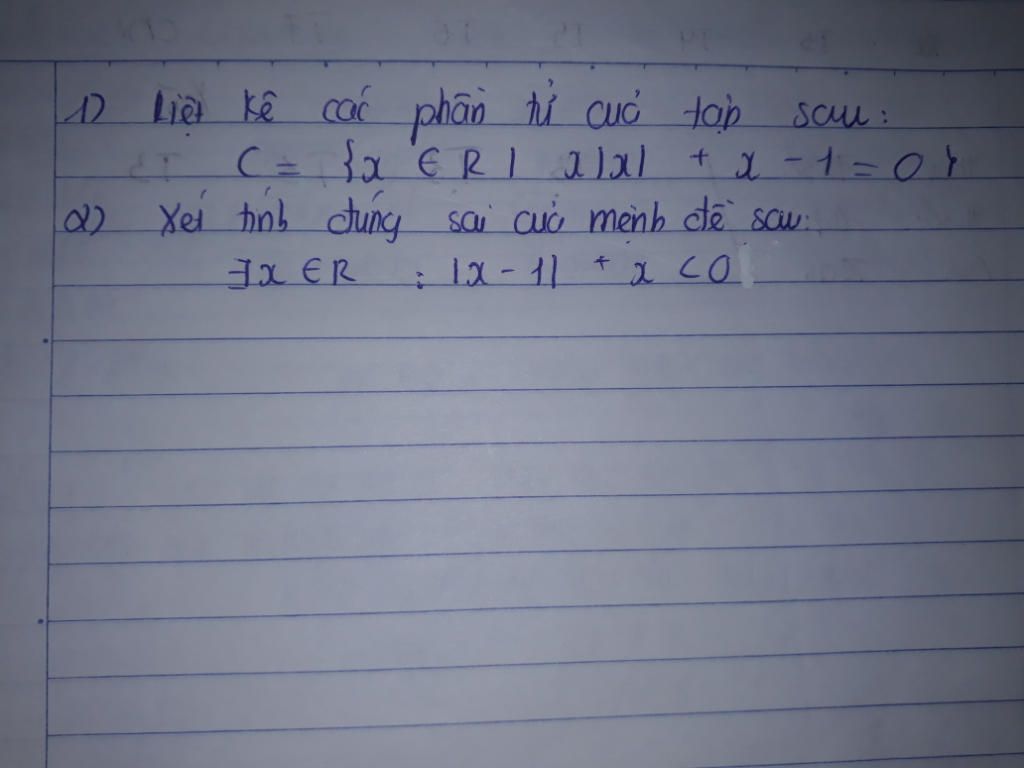 1) Liệt kê các phần tử của tập sau:
C = {x ∈ R | x|x| + x - 1 = 0}
2) Xét tính đúng sai của mệnh đề sau:
∃x ∈ R : |x - 1| + x < 0